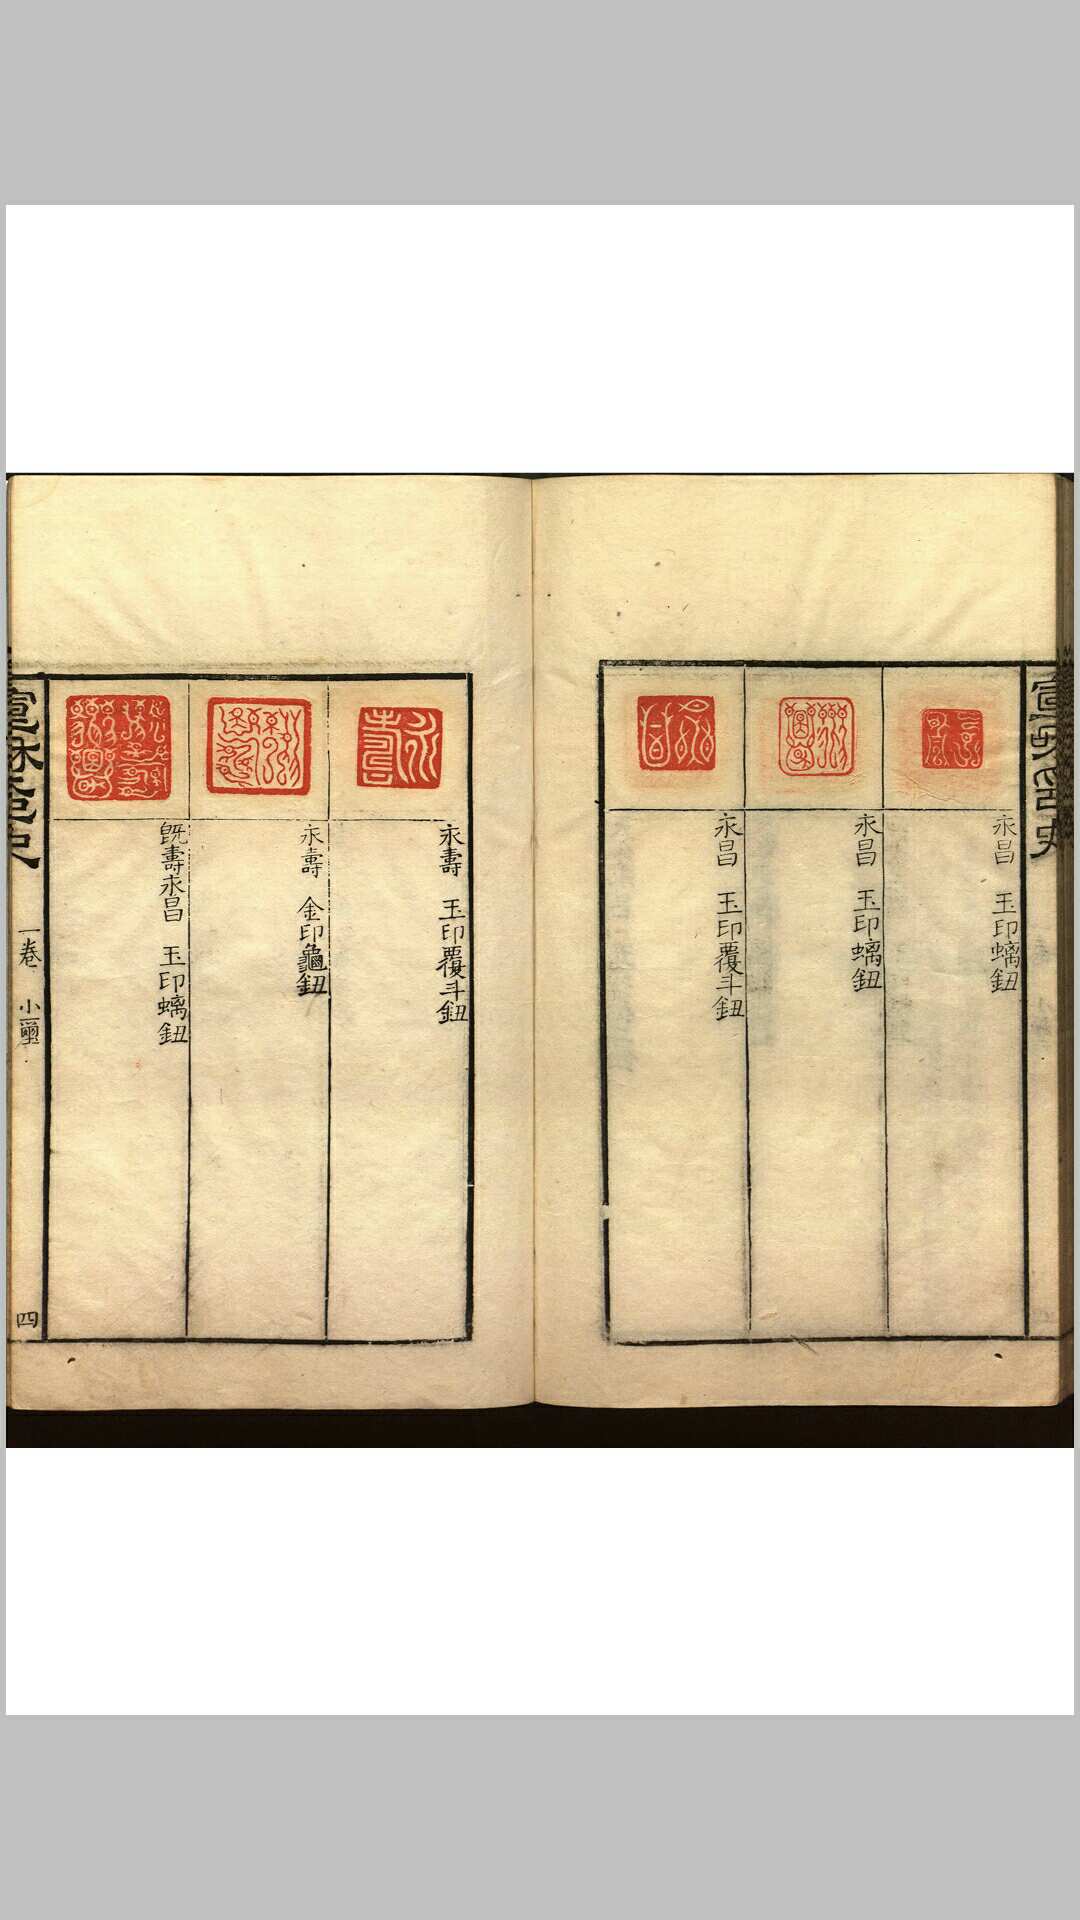 宣和印史
永昌 玉印螭鈕
永昌 玉印螭鈕
永昌 玉印覆斗鈕
永壽 玉印覆斗鈕
永壽 金印龜鈕
既壽永昌 玉印螭鈕
宣和印史 一卷 小璽 四